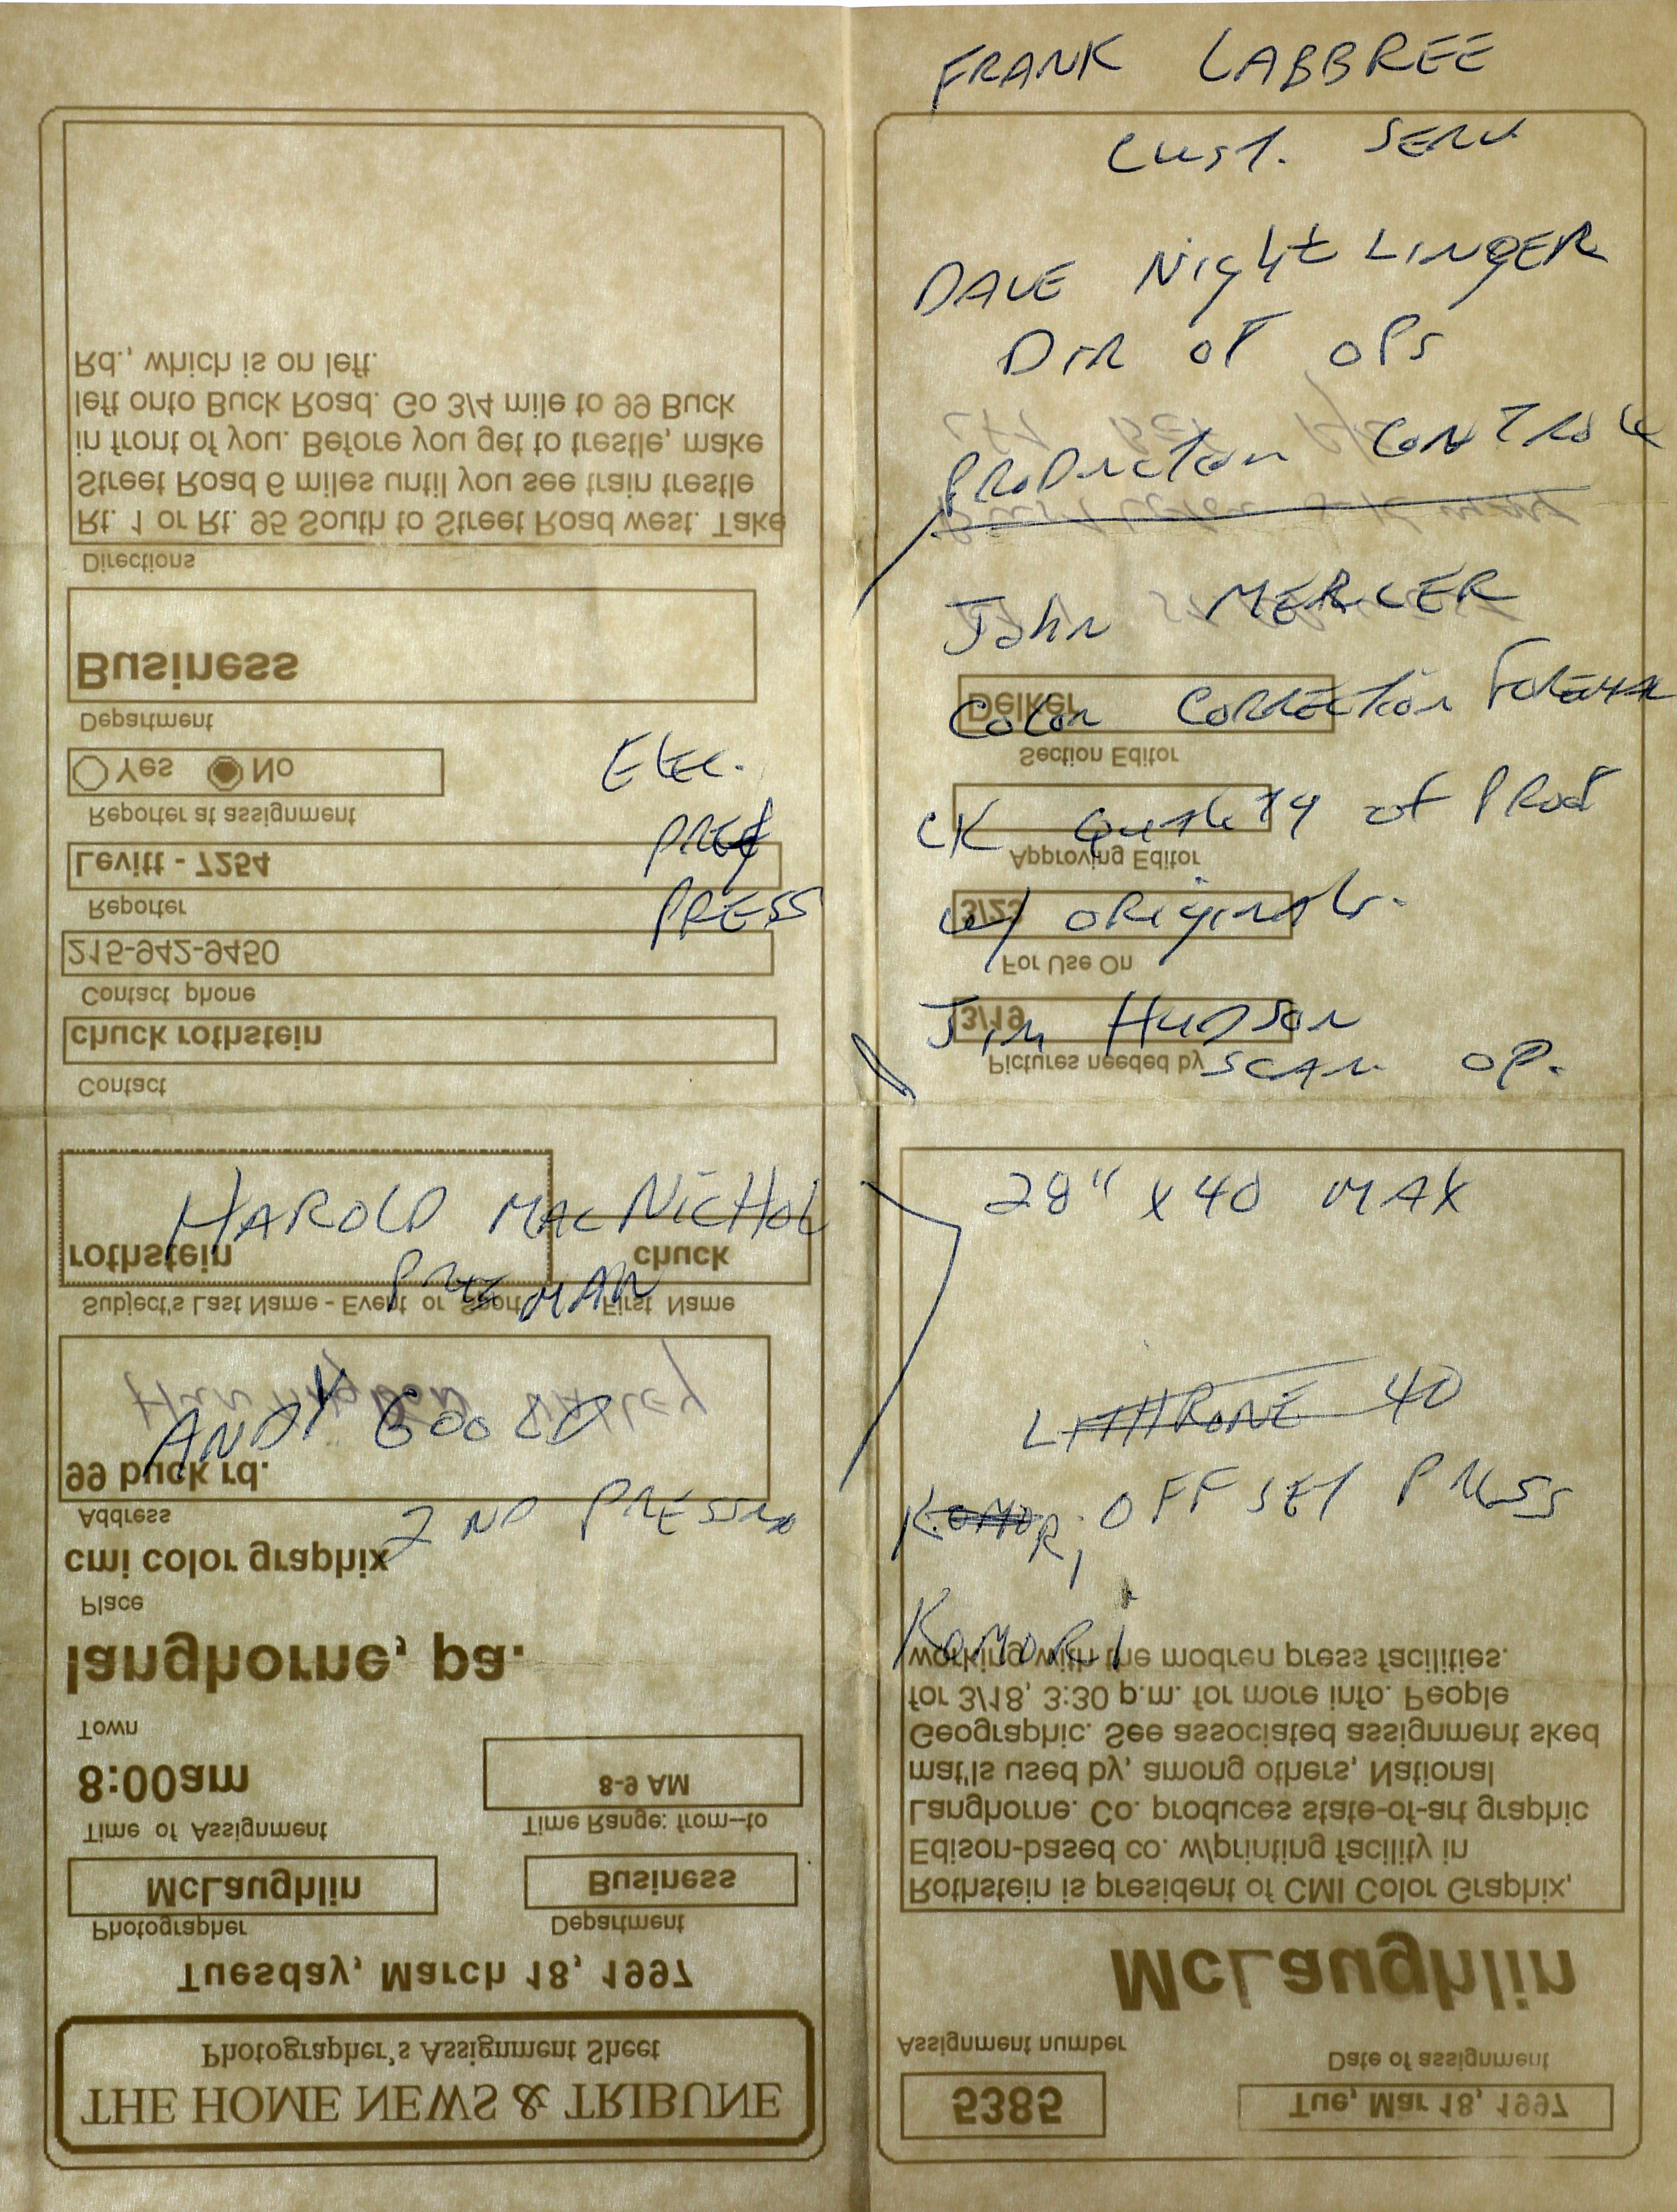 FRANK LABBREE
CUST. SERV
DAVE NIghtLINGER
DIR OF OPS
PRODucton CONTROL
John MERCER
COLOR CORRECTION
CK Quality of PROD
w/ ORIginals.
Jim HUDSON
SCAN OP.
28" X 40 MAX
LITHRONE 40
KOMORi OFFSET PRESS
KOMORi
ELEC.
PRE
PRESS
HAROLD MACNICHOL
MAN
ANDY GOOLD
2ND
THE HOME NEWS & TRIBUNE
Photographer's Assignment Sheet
Tuesday, March 18, 1997
Photographer
McLaughlin
Department
Business
Time of Assignment
8:00am
Time Range: from--to
8-9 AM
Town
langhorne, pa.
Place
cmi color graphix
Address
99 buck rd.
Huntingdon Valley
Subject's Last Name - Event or Sport
rothstein
First Name
chuck
Contact
chuck rothstein
Contact phone
215-942-9450
Reporter
Levitt - 7254
Reporter at assignment
Yes No
Department
Business
Directions
Rt. 1 or Rt. 95 South to Street Road west. Take
Street Road 6 miles until you see train trestle
in front of you. Before you get to trestle, make
left onto Buck Road. Go 3/4 mile to 99 Buck
Rd., which is on left.
Assignment number
5385
Date of assignment
Tue, Mar 18, 1997
McLaughlin
Rothstein is president of CMI Color Graphix,
Edison-based co. w/printing facility in
Langhorne. Co. produces state-of-art graphic
mat'ls used by, among others, National
Geographic. See associated assignment sked
for 3/18, 3:30 p.m. for more info. People
working with the modren press facilities.
Pictures needed by
3/19
For Use On
3/23
Approving Editor
Section Editor
Delker